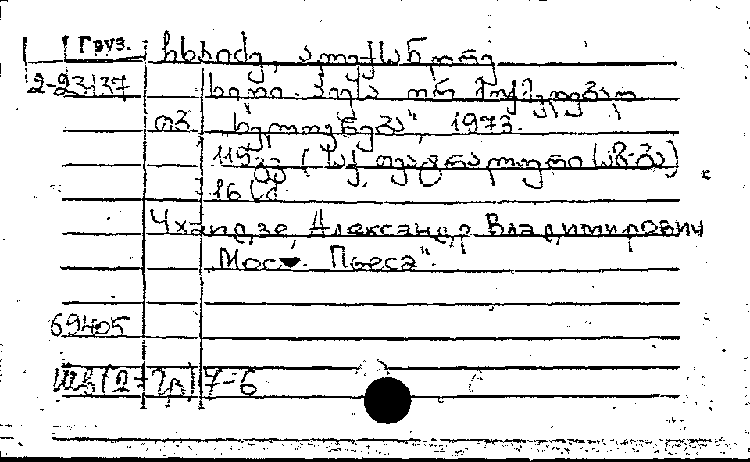 Груз. ჩხაიძე, ალექსანდრე
2-23137 ხიდი. პიესა ორ მოქმედებად
თბ. "ხელოვნება", 1973.
119 გვ. (საქ. თეატრალური საზ-ბა)
16 სმ
Чхаидзе, Александр Владимирович
Мост. Пьеса".
69405
7-6